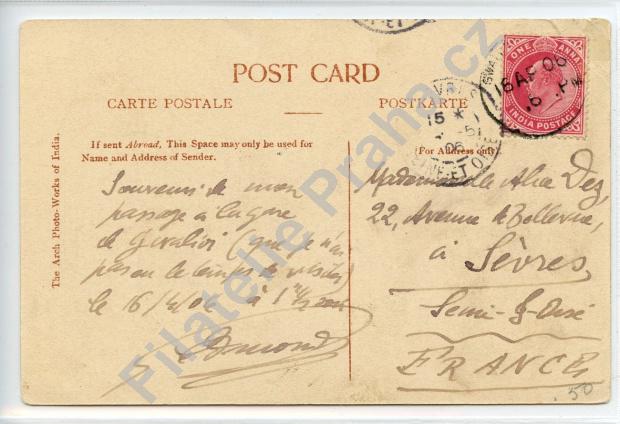 POST CARD
CARTE POSTALE
POSTKARTE
If sent Abroad, This Space may only be used for
Name and Address of Sender.
(For Address only)
The Arch Photo-Works of India.
ONE ANNA
INDIA POSTAGE
GWAL
16 AP 06
15 *
06
ET OISE
Souvenir de mon
passage à la gare
de Gwalior (que je n'ai
pas eu le temps de visiter)
le 16/4/06 à
Edmond
Madame de
22, Avenue de Bellevue,
à Sèvres
Seine-&-Oise
FRANCE
50
Filatelie Praha.cz